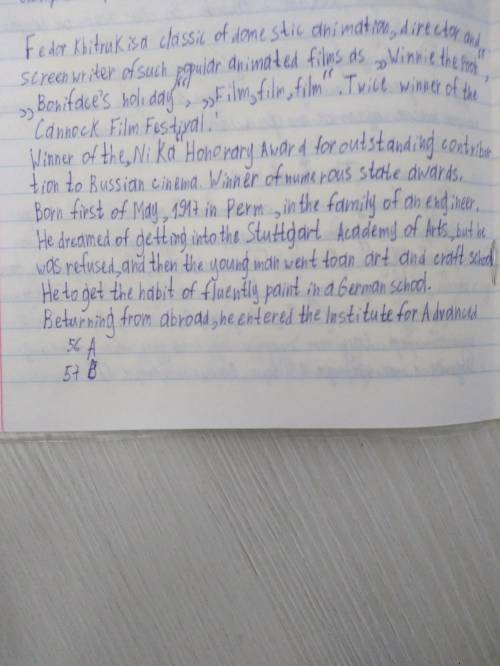 Fedor Khitruk is a classic of domestic animation, director and
screenwriter of such popular animated films as „Winnie the Pooh",
„Boniface's holiday", „Film, film, film". Twice winner of the
Cannock Film Festival.
Winner of the „Nika" Honorary Award for outstanding contribu
tion to Russian cinema. Winner of numerous state awards.
Born first of May, 1917 in Perm, in the family of an engineer.
He dreamed of getting into the Stuttgart Academy of Arts, but he
was refused, and then the young man went to an art and craft school
He to get the habit of fluently paint in a German school.
Beturning from abroad, he entered the Institute for Advanced
56 A
57 B